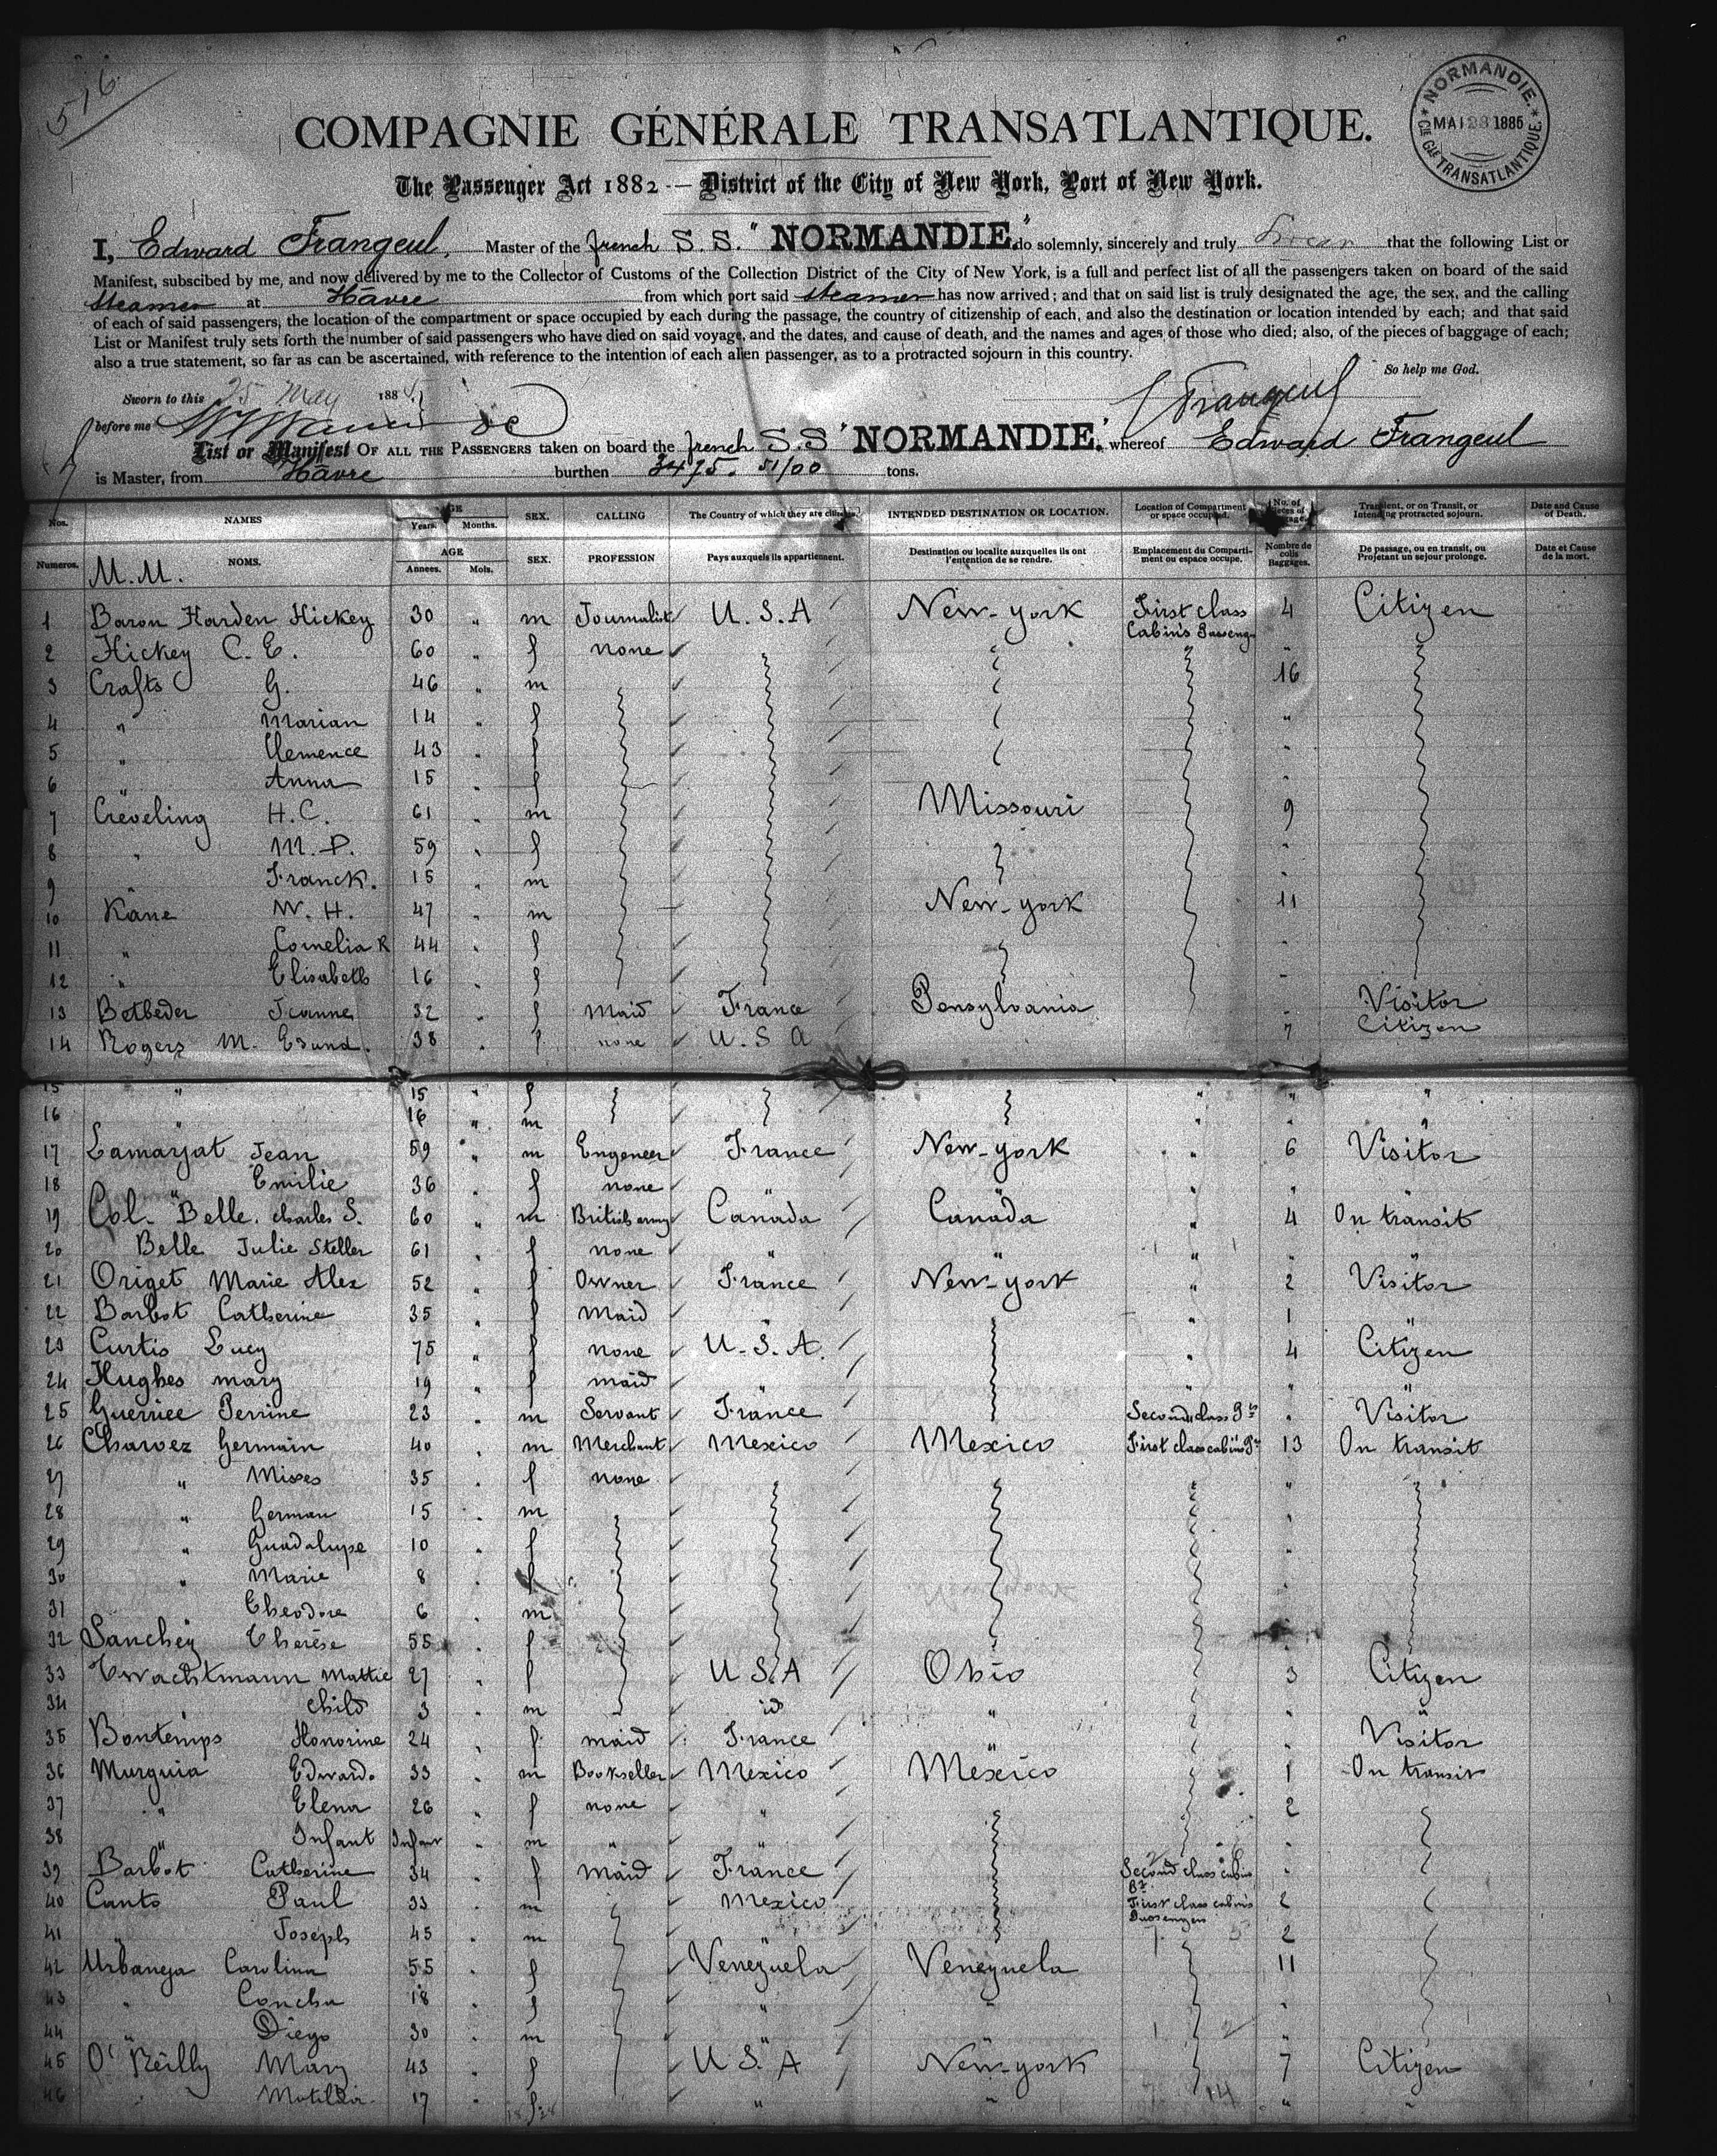 516
COMPAGNIE GÉNÉRALE TRANSATLANTIQUE.
NORMANDIE. MAI 23 1885 CIE GLE TRANSATLANTIQUE
The Passenger Act 1882 — District of the City of New York, Port of New York.
I, Edward Frangeul, Master of the french S. S. "NORMANDIE" do solemnly, sincerely and truly Swear that the following List or
Manifest, subscibed by me, and now delivered by me to the Collector of Customs of the Collection District of the City of New York, is a full and perfect list of all the passengers taken on board of the said
Steamer at Hâvre from which port said steamer has now arrived; and that on said list is truly designated the age, the sex, and the calling
of each of said passengers, the location of the compartment or space occupied by each during the passage, the country of citizenship of each, and also the destination or location intended by each; and that said
List or Manifest truly sets forth the number of said passengers who have died on said voyage, and the dates, and cause of death, and the names and ages of those who died; also, of the pieces of baggage of each;
also a true statement, so far as can be ascertained, with reference to the intention of each alien passenger, as to a protracted sojourn in this country.
So help me God.
Sworn to this 25 May 1885
Frangeul
before me
List or Manifest OF ALL THE PASSENGERS taken on board the french S.S "NORMANDIE" whereof Edward Frangeul
is Master, from Hâvre burthen 3475. 51/00 tons.
Nos. NAMES AGE Years. Months. SEX. CALLING The Country of which they are citizens. INTENDED DESTINATION OR LOCATION. Location of Compartment or space occupied. No. of Pieces of Baggage. Transient, or on Transit, or Intending protracted sojourn. Date and Cause of Death.
Numeros. NOMS. AGE Annees. Mois. SEX. PROFESSION Pays auxquels ils appartiennent. Destination ou localite auxquelles ils ont l'entention de se rendre. Emplacement du Compartiment ou espace occupe. Nombre de colis Baggages. De passage, ou en transit, ou Projetant un sejour prolonge. Date et Cause de la mort.
M.M.
1 Baron Harden Hickey 30 " m Journalist U.S.A New-york First class Cabin's Passeng 4 Citizen
2 Hickey C. E. 60 " f none "
3 Crafts G. 46 " m 16
4 " Marian 14 " f "
5 " Clemence 43 " f "
6 " Anna 15 " f "
7 Creveling H.C. 61 " m Missouri 9
8 " M. P. 59 " f "
9 " Franck. 15 " m "
10 Kane W. H. 47 " m New-york 11
11 " Cornelia R 44 " f "
12 " Elisabeth 16 " f "
13 Betbeder Jeanne 32 " f Maid France Pensylvania " Visitor
14 Rogers M. 38 " f none U.S A 7 Citizen
15 " 15 " f " " "
16 16 " m " " "
17 Lamarjat Jean 59 " m Engeneer France New-york " 6 Visitor
18 " Emilie 36 " f none " " " " "
19 Col. Belle. charles S. 60 " m British army Canada Canada " 4 On transit
20 Belle Julie Steller 61 " f none " " " " "
21 Origet Marie Alex 52 " f Owner France New-york " 2 Visitor
22 Barbot Catherine 35 " f Maid " " 1 "
23 Curtis Lucy 75 " f none U.S.A. " 4 Citizen
24 Hughes mary 19 " f maid " " " "
25 Guerriee Perrine 23 " m Servant France Second class Prs " Visitor
26 Chavez Germain 40 " m Merchant Mexico Mexico First class cabin's Pr 13 On transit
27 " Mixes 35 " f none "
28 " German 15 " m "
29 " Guadalupe 10 " f "
30 " Marie 8 " f "
31 Theodore 6 " m
32 Sanchez Therèse 55 " f
33 Twachtmann Mattie 27 " f U S.A Ohio 3 Citizen
34 child 3 " m id " " "
35 Bontemps Honorine 24 " f maid France " " Visitor
36 Murguia Edwardo 33 " m Bookseller Mexico Mexico 1 On transit
37 " Elena 26 " f none " 2
38 " Infant Infant " m " " "
39 Barbot Catherine 34 " f Maid France Second class cabin Pr "
40 Canto Paul 33 " m Mexico First class cabin's Passenger 2
41 " Joseph 45 " m " 2
42 Urbaneja Carolina 55 " f Venezuela Venezuela 11
43 " Concha 18 " f " " "
44 " Diego 30 " m " "
45 O' Reilly Mary 43 " f U S. A New-york 7 Citizen
46 " Matilda 17 " f " " " "